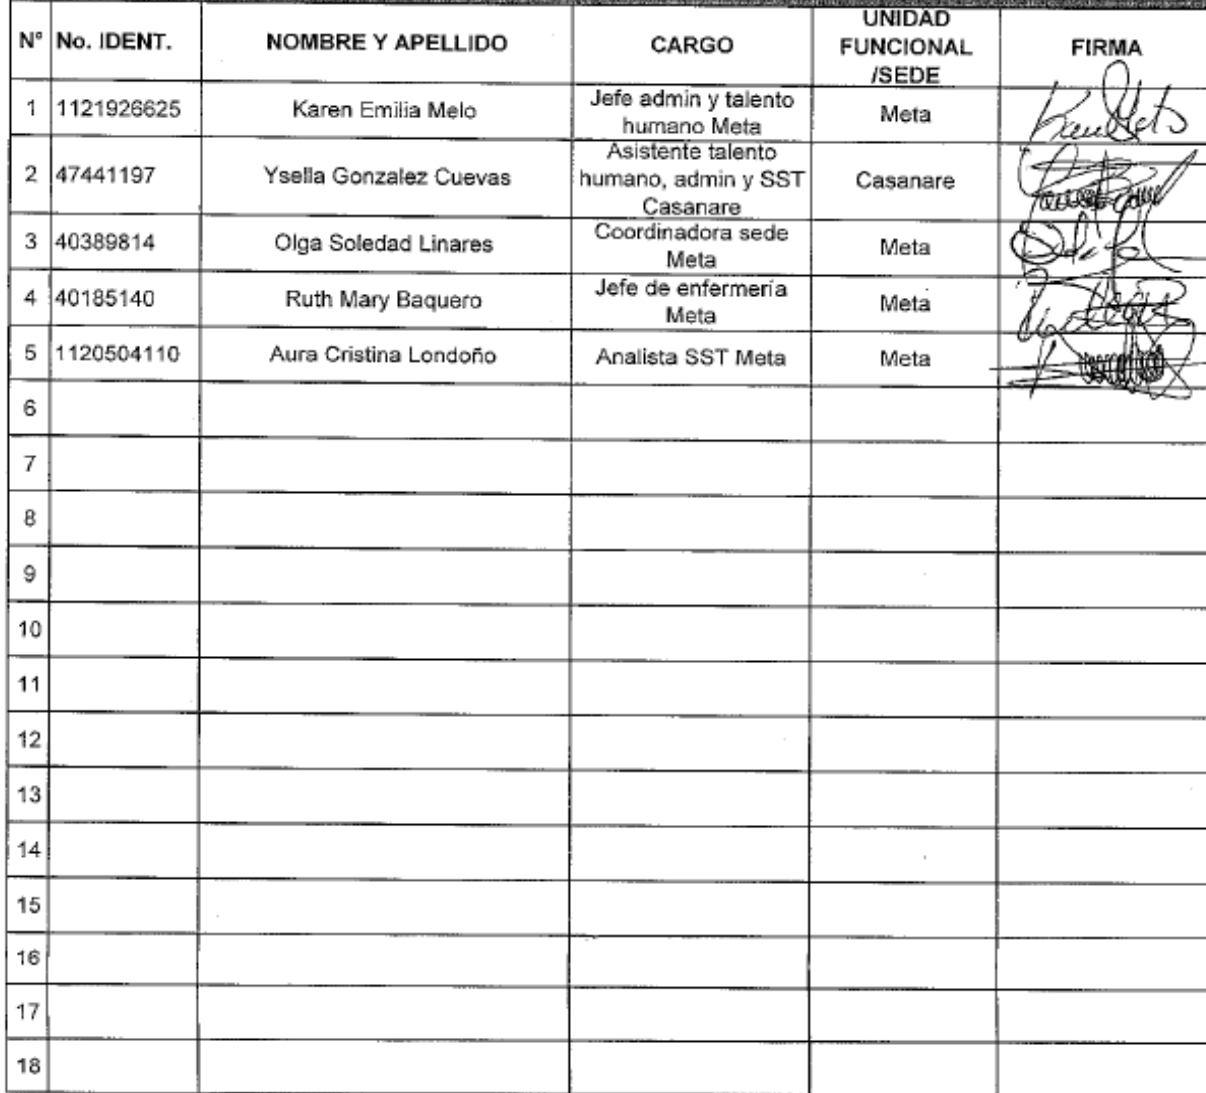 N° No. IDENT. NOMBRE Y APELLIDO CARGO UNIDAD FUNCIONAL /SEDE FIRMA
1 1121926625 Karen Emilia Melo Jefe admin y talento humano Meta Meta
2 47441197 Ysella Gonzalez Cuevas Asistente talento humano, admin y SST Casanare Casanare
3 40389814 Olga Soledad Linares Coordinadora sede Meta Meta
4 40185140 Ruth Mary Baquero Jefe de enfermería Meta Meta
5 1120504110 Aura Cristina Londoño Analista SST Meta Meta
6
7
8
9
10
11
12
13
14
15
16
17
18